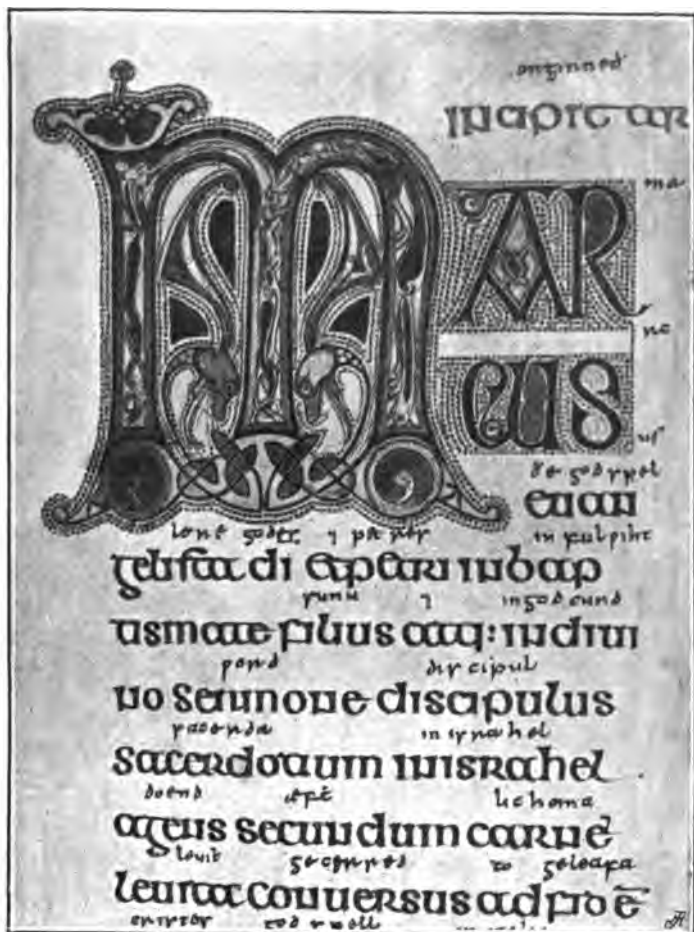 onginneð
incipit ar
ma
MAR
CUS
us
ðe godspel
euan
godes ⁊ in fulwiht
gelista di et petri in bap
sunu ⁊ in godcund
tismate filius atq: in diui
word discipul
no sermone discipulus
sacerda in israhel
sacerdotium in israhel
doend æft lichoma
agens secundum carnē
leuit gecerred to geleafa
leuita conuersus ad fidē